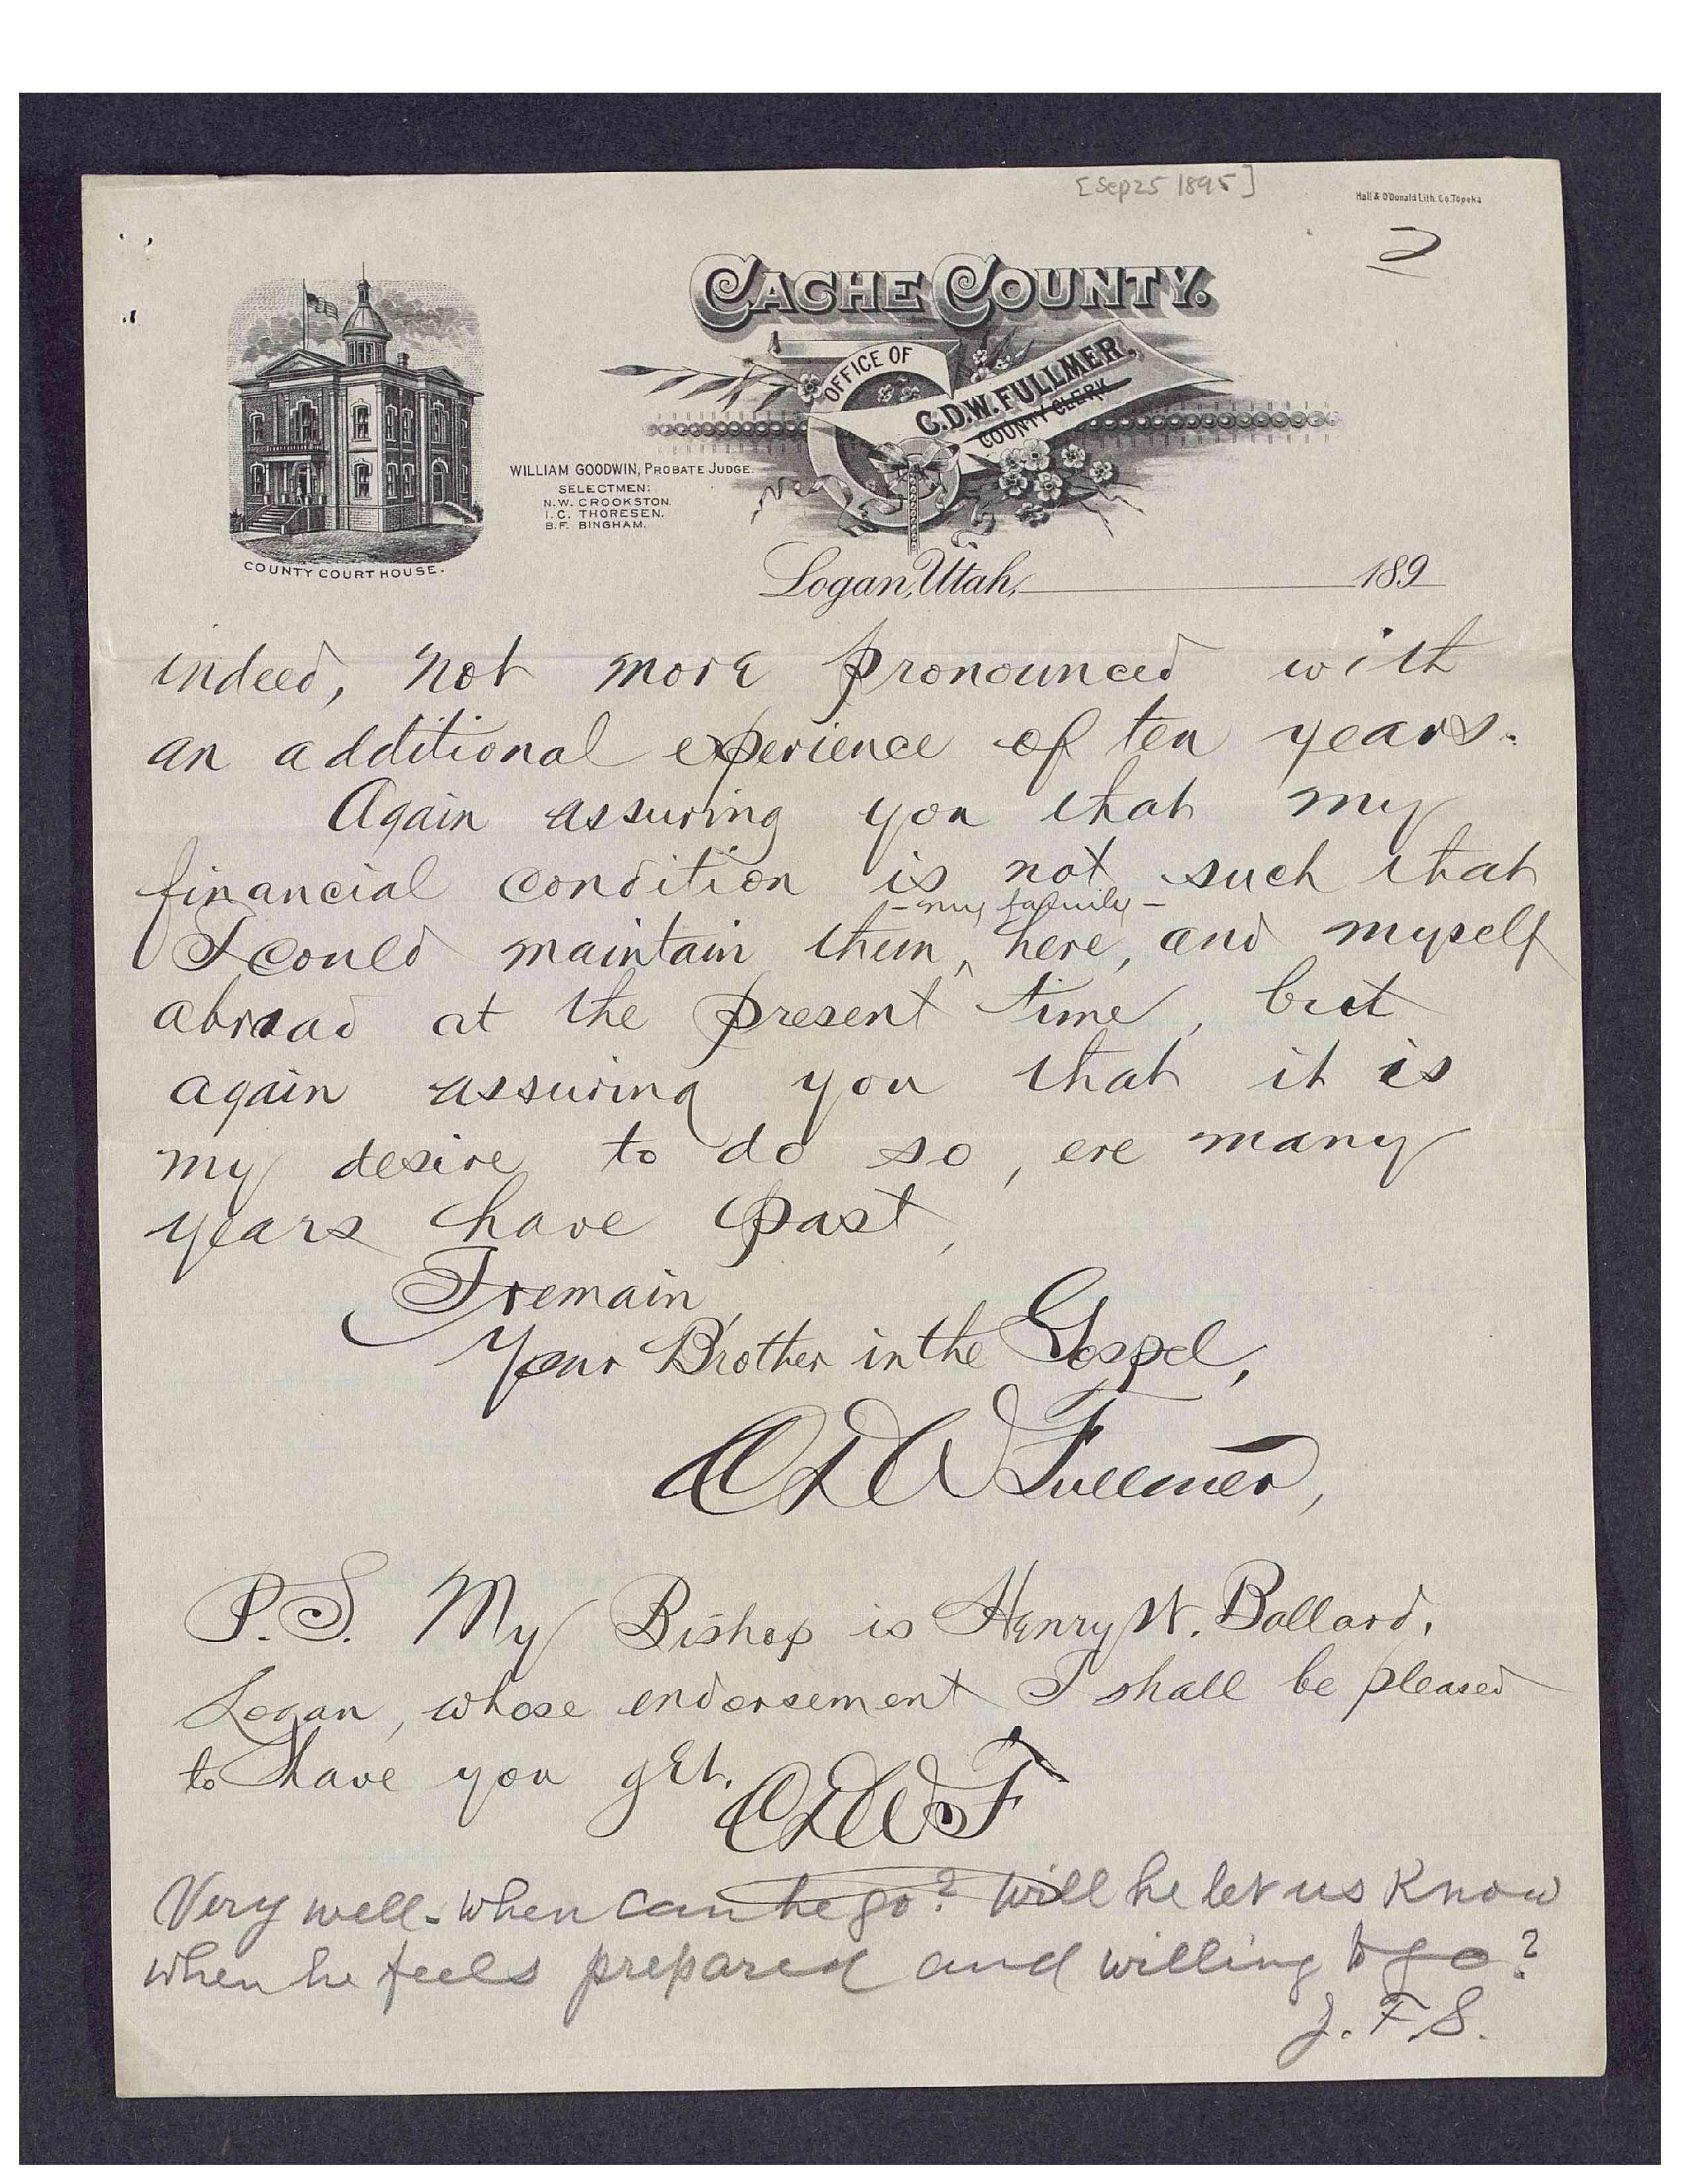 [Sep 25 1895]
Hall & O'Donald Lith. Co. Topeka
2
CACHE COUNTY.
OFFICE OF
C.D.W. FULLMER,
COUNTY CLERK
WILLIAM GOODWIN, PROBATE JUDGE.
SELECTMEN:
N.W. CROOKSTON.
I.C. THORESEN.
B.F. BINGHAM.
COUNTY COURT HOUSE.
Logan, Utah, 189
indeed, not more pronounced with
an additional experience of ten years.
Again assuring you that my
financial condition is not such that
- my family -
I could maintain them, here, and myself
abroad at the present time, but
again assuring you that it is
my desire to do so, ere many
years have past,
I remain,
Your Brother in the Gospel,
C D W Fullmer,
P.S. My Bishop is Henry W. Ballard,
Logan, whose endorsement I shall be pleased
to have you get.
CDWF
Very well - when can he go? Will he let us know
when he feels prepared and willing to go?
J. F. S.